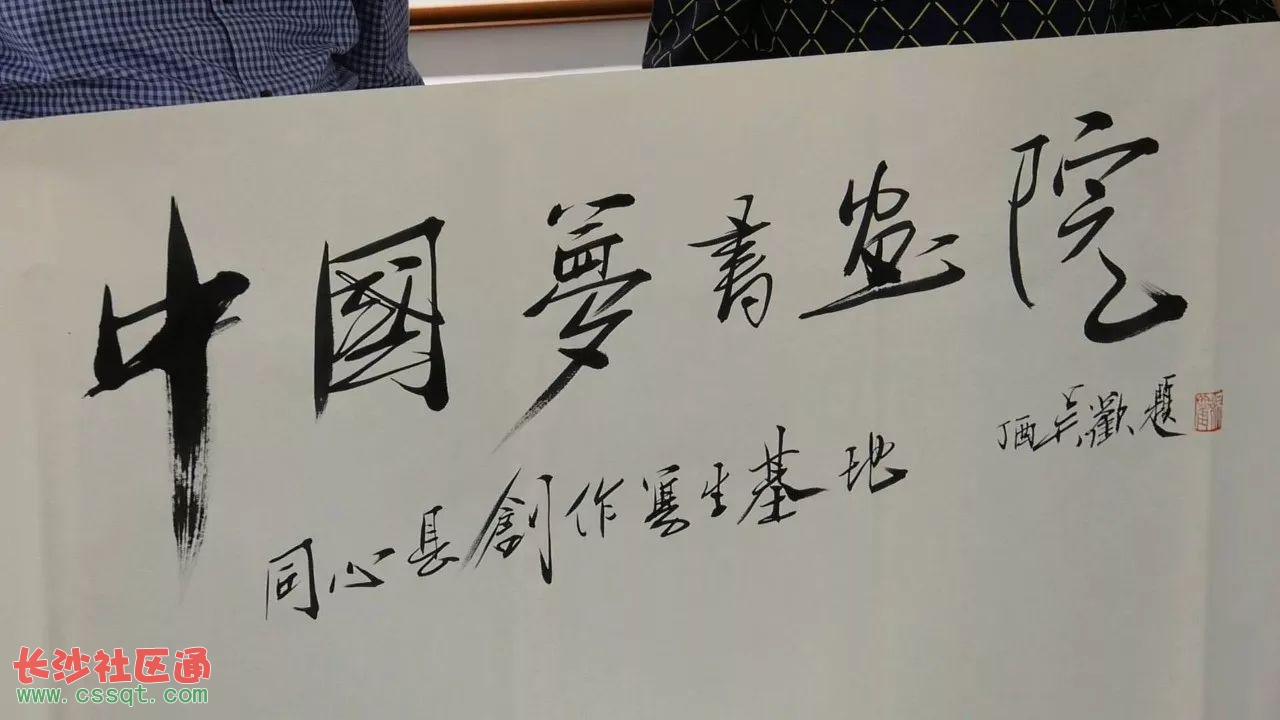 中國夢書畫院
同心县創作寫生基地
丁酉吴歡題
长沙社区通
www.cssqt.com